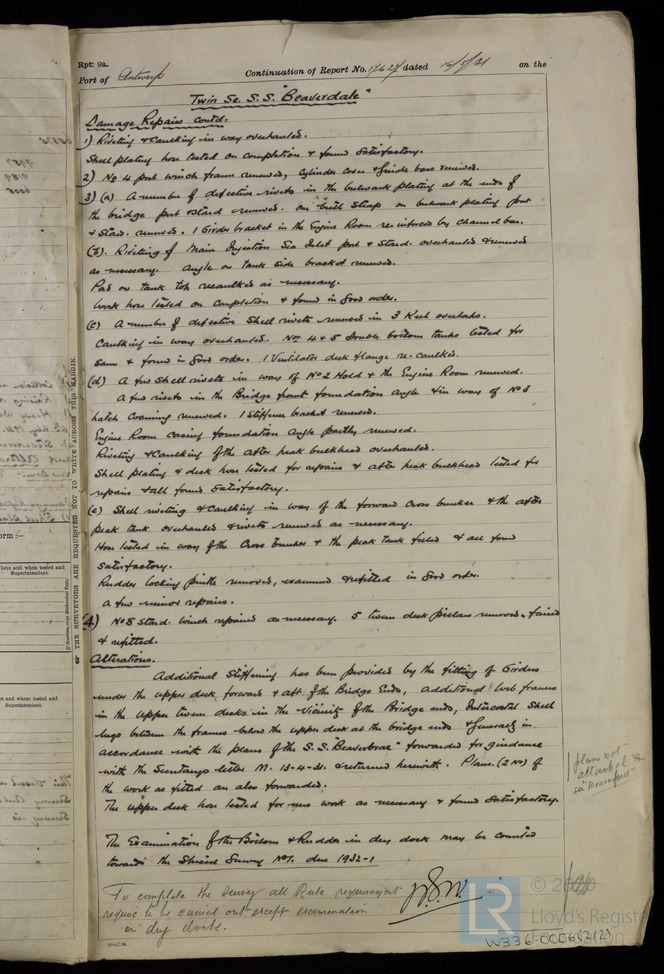 Rpt: 9a.
Port of Antwerp Continuation of Report No. 17627 dated 16/5/31 on the
Twin Sc. S.S. "Beaverdale"
Damage Repairs contd.
1) Riveting & Caulking in way overhauled.
Shell plating hose tested on completion & found satisfactory.
2) No 4 port winch frame renewed, cylinder cover & guide bars renewed.
3) (a) A number of defective rivets in the bulwark plating at the ends of
the bridge port & stard renewed. One butt strap on bulwark plating port
& Stard. renewed. 1 Girder bracket in the Engine Room reinforced by channel bar.
(b). Riveting of Main Injection Sea Inlet port & Stard. overhauled & renewed
as necessary. Angle on tank side bracket renewed.
Pad on tank top recaulked as necessary.
Work hose tested on completion & found in good order.
(c) A number of defective Shell rivets renewed in 3 Keel overlaps.
Caulking in way overhauled. No 4 & 5 Double bottom tanks tested for
same & found in good order. 1 Ventilator deck flange re-caulked.
(d) A few Shell rivets in way of No 2 Hold & the Engine Room renewed.
A few rivets in the Bridge front foundation Angle & in way of No 3
hatch Coaming renewed. 1 Stiffener bracket renewed.
Engine Room casing foundation angle partly renewed.
Riveting & Caulking of the after peak bulkhead overhauled.
Shell plating & deck hose tested for repairs & after peak bulkhead tested for
repairs & all found satisfactory.
(e) Shell riveting & Caulking in way of the forward Cross bunker & the after
peak tank overhauled & rivets renewed as necessary.
Hose tested in way of the Cross bunker & the peak tank filled & all found
satisfactory.
Rudder locking pintle removed, examined & refitted in good order.
A few minor repairs.
4) No 5 Stard. winch repaired as necessary. 5 tween deck pillars removed, faired
& refitted.
Alterations.
Additional Stiffening has been provided by the fitting of Girders
under the upper deck forward & aft. of the Bridge Ends, Additional Web frames
in the upper tween decks in the vicinity of the Bridge ends, Intercostal Shell
lugs between the frames below the upper deck at the bridge ends & generally in
accordance with the plans of the S.S. "Beaverbrae" forwarded for guidance
with the Secretarys letter M. 13-4-31. & returned herewith. Plans. (2 No) of
the work as fitted are also forwarded.
The upper deck hose tested for new work as necessary & found satisfactory.
plans not
attached &
see "Beaverford"
The Examination of the Bottom & Rudder in dry dock may be counted
towards the Special Survey No 1. due 1932-1
To complete the survey all Rule requirement
require to be carried out except examination
in dry dock.
THE SURVEYORS ARE REQUESTED NOT TO WRITE ACROSS THIS MARGIN.
orm :—
here and when tested and
Superintendent.
n and where tested and
Superintendent.
LR
Lloyd's Register
Foundation
W336-0006(2/2)